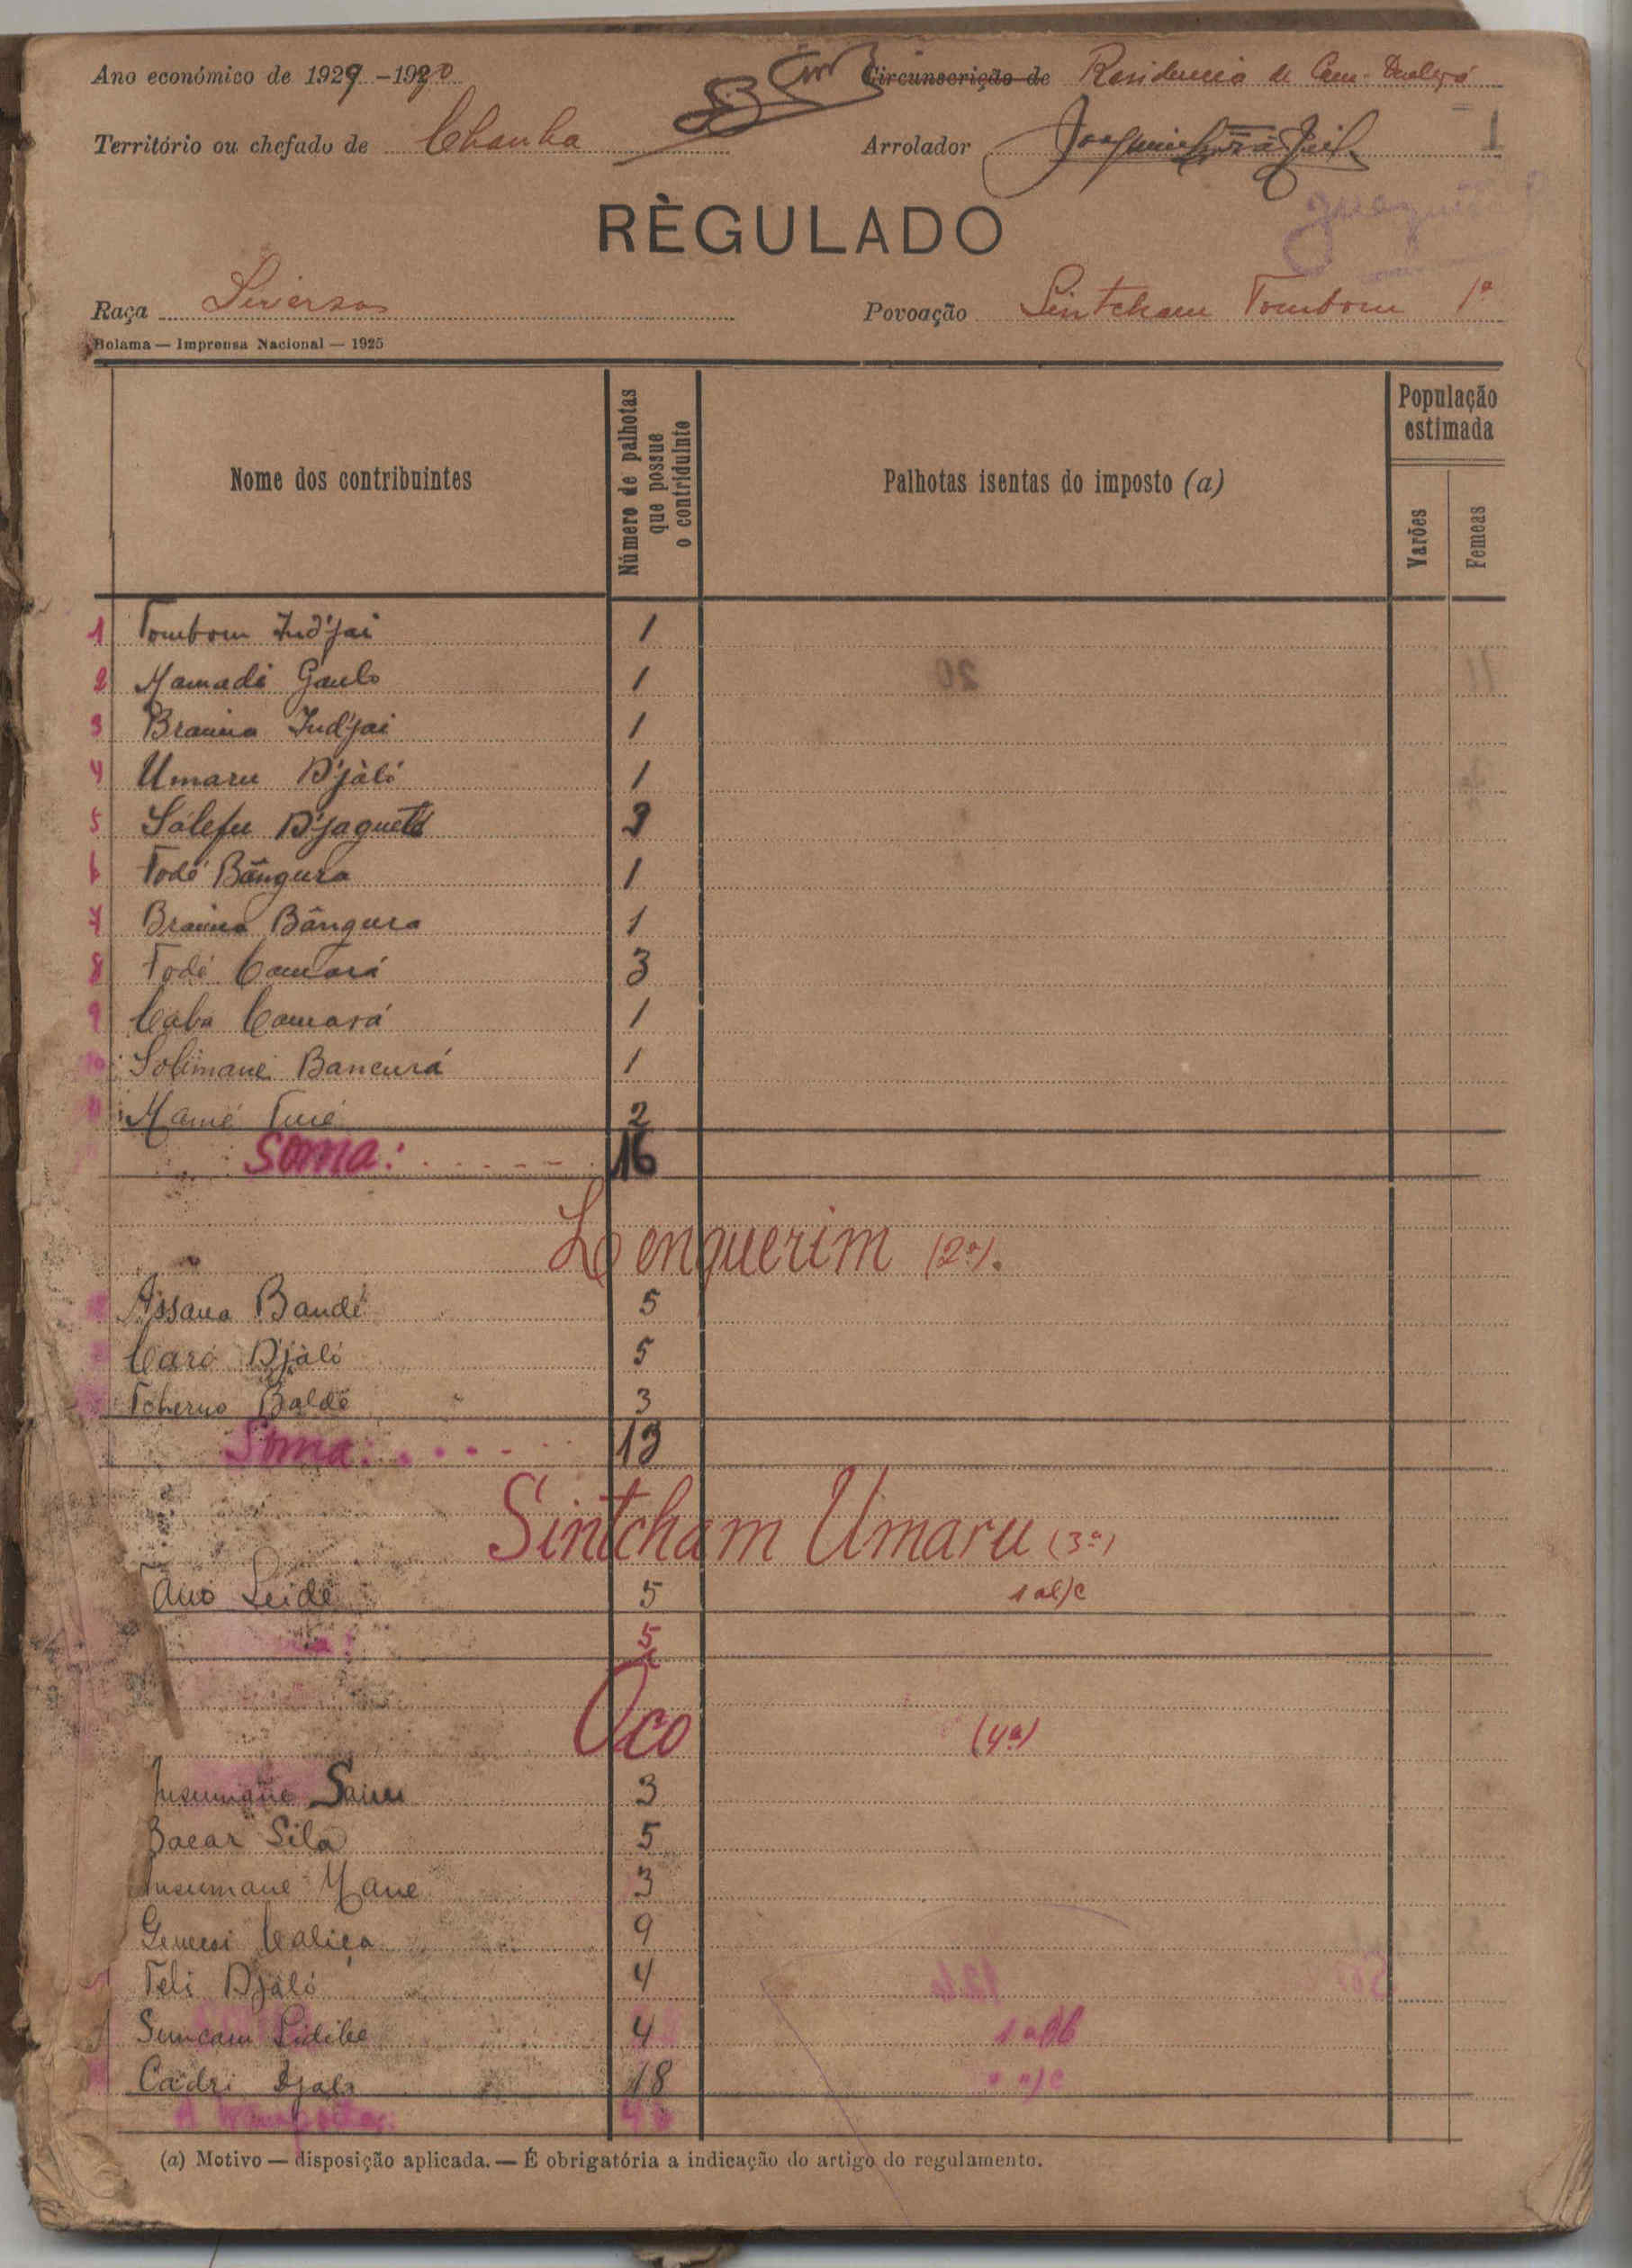 Ano económico de 1929-1930
Circunscrição de Residencia de
Território ou chefado de Chanha
Arrolador
1
RÈGULADO
Raça Diversos
Povoação Sintcham Tombom 1ª
Bolama — Imprensa Nacional — 1925
Nome dos contribuintes
Número de palhotas
que possue
o contriduinto
Palhotas isentas do imposto (a)
População
estimada
Varões
Femeas
1 Tombom Ind'jai 1
2 Mamadi Gaulo 1
3 Braima Ind'jai 1
4 Umaru D'jàló 1
5 Sálefu D'jaguetè 3
6 Fodé Bângura 1
7 Braima Bângura 1
8 Fodé Camará 3
9 Caba Camará 1
10 Solimané Bancurá 1
11 Mamé Turé 2
Soma: 16
Lenquerim (2ª).
Assana Bandé 5
Caró D'jàló 5
Tcherno Baldé 3
Soma: 13
Sintcham Umaru (3ª)
Seidé 5 1 al/c
5
Oco (4ª)
Sanu 3
Bacar Sila 5
Insumane Mane 3
Caliça 9
Teli Djaló 4
Suncam Sidibe 4
Cadri Djaló 18
A transportar:
(a) Motivo — disposição aplicada. — É obrigatória a indicação do artigo do regulamento.